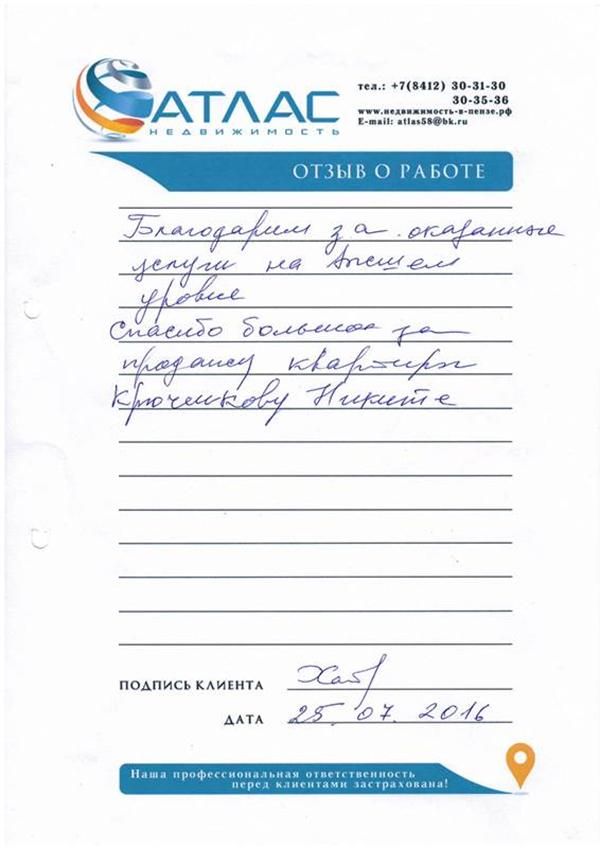 АТЛАС
НЕДВИЖИМОСТЬ
тел.: +7(8412) 30-31-30
30-35-36
www.недвижимость-в-пензе.рф
E-mail: atlas58@bk.ru
ОТЗЫВ О РАБОТЕ
Благодарим за оказанные
услуги на высшем
уровне
Спасибо большое за
продажу квартиры
Крюченкову Никите
ПОДПИСЬ КЛИЕНТА
ДАТА 25.07.2016
Наша профессиональная ответственность
перед клиентами застрахована!